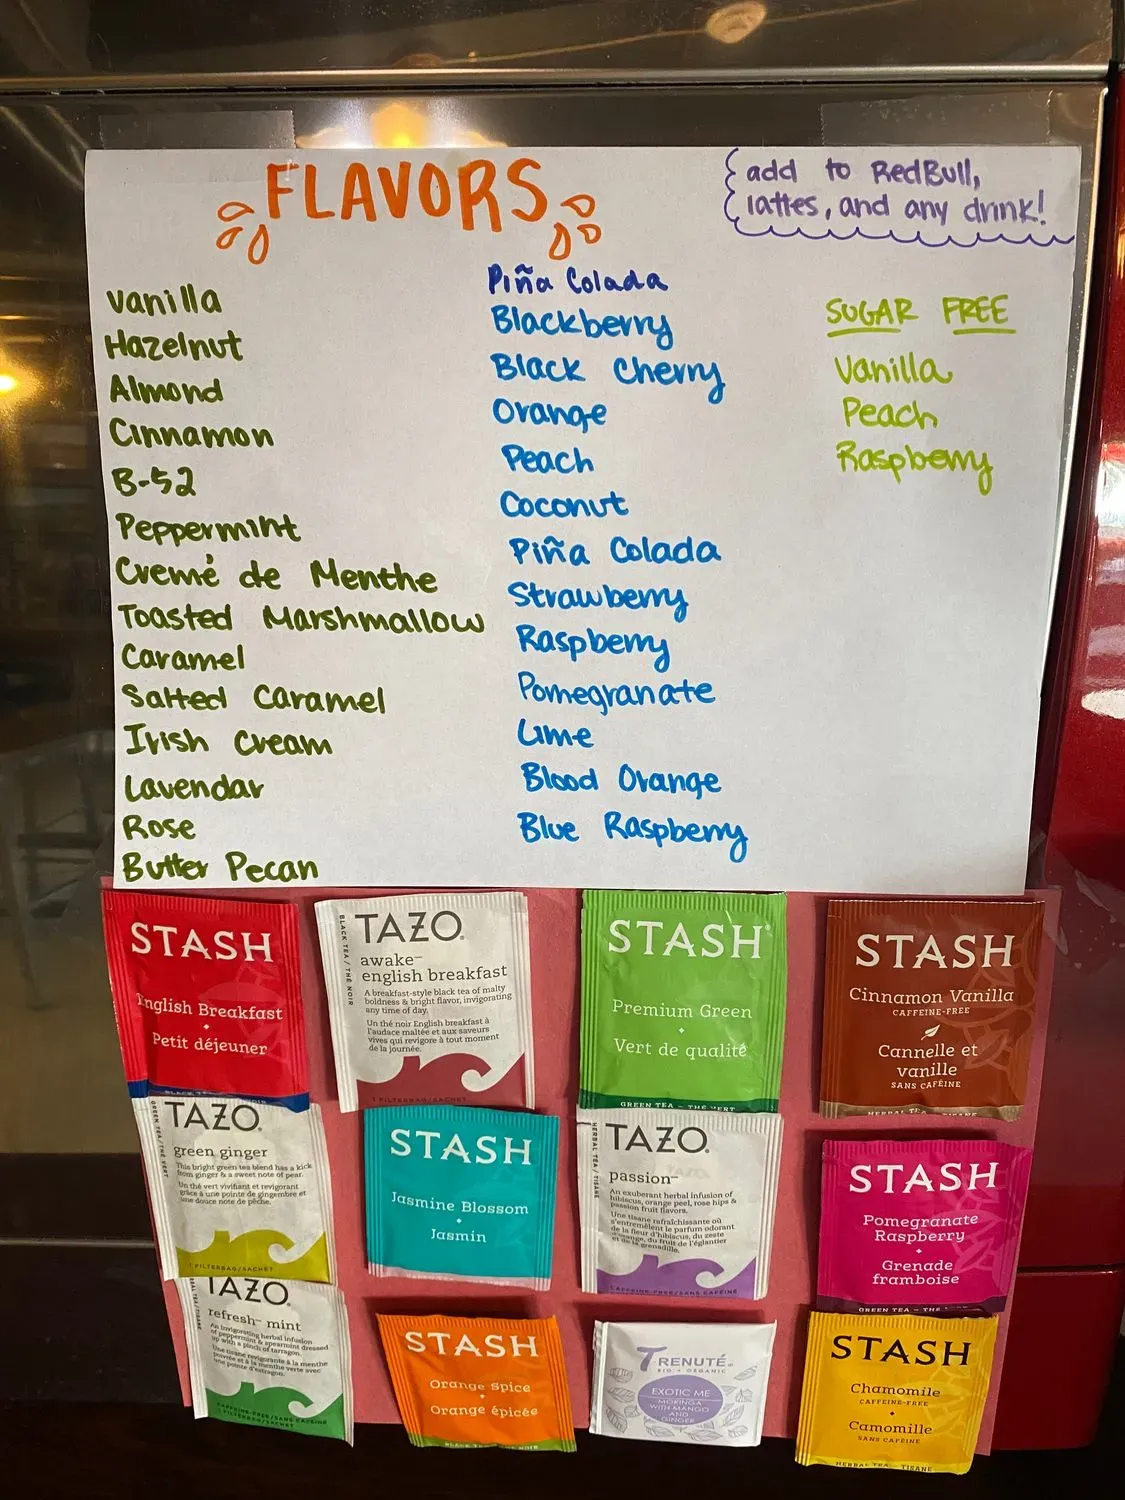 FLAVORS
add to RedBull,
lattes, and any drink!
Vanilla
Hazelnut
Almond
Cinnamon
B-52
Peppermint
Cremé de Menthe
Toasted Marshmallow
Caramel
Salted Caramel
Irish Cream
Lavendar
Rose
Butter Pecan
Piña Colada
Blackberry
Black Cherry
Orange
Peach
Coconut
Piña Colada
Strawberry
Raspberry
Pomegranate
Lime
Blood Orange
Blue Raspberry
SUGAR FREE
Vanilla
Peach
Raspberry
STASH
English Breakfast
Petit déjeuner
TAZO
BLACK TEA / THÉ NOIR
awake™
english breakfast
A breakfast-style black tea of malty
boldness & bright flavor, invigorating
any time of day.
Un thé noir English breakfast à
l'audace maltée et aux saveurs
vives qui revigore à tout moment
de la journée.
1 FILTERBAG/SACHET
STASH
Premium Green
Vert de qualité
GREEN TEA – THÉ VERT
STASH
Cinnamon Vanilla
CAFFEINE-FREE
Cannelle et
vanille
SANS CAFÉINE
HERBAL TEA – TISANE
TAZO
GREEN TEA / THÉ VERT
green ginger
This bright green tea blend has a kick
from ginger & a sweet note of pear.
Un thé vert vivifiant et revigorant
grâce à une pointe de gingembre et
une douce note de pêche.
1 FILTERBAG/SACHET
STASH
Jasmine Blossom
Jasmin
TAZO
HERBAL TEA / TISANE
passion™
An exuberant herbal infusion of
hibiscus, orange peel, rose hips &
passion fruit flavors.
Une tisane rafraîchissante où
s'entremêlent le parfum odorant
de la fleur d'hibiscus, du zeste
d'orange, du fruit de l'églantier
et de la grenadille.
CAFFEINE-FREE/SANS CAFÉINE
STASH
Pomegranate
Raspberry
Grenade
framboise
GREEN TEA – THÉ
TAZO
refresh™ mint
An invigorating herbal infusion
of peppermint & spearmint dressed
up with a pinch of tarragon.
Une tisane revigorante à la menthe
poivrée et à la menthe verte avec
une pointe d'estragon.
CAFFEINE-FREE/SANS CAFÉINE
1 FILTERBAG/SACHET
STASH
Orange Spice
Orange épicée
BLACK TEA – THÉ NOIR
T-RENUTÉ
BIO • ORGANIC
EXOTIC ME
MORINGA
WITH MANGO
AND
GINGER
STASH
Chamomile
CAFFEINE-FREE
Camomille
SANS CAFÉINE
HERBAL TEA – TISANE